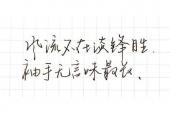 风流不在谈锋胜，
袖手无言味最长。